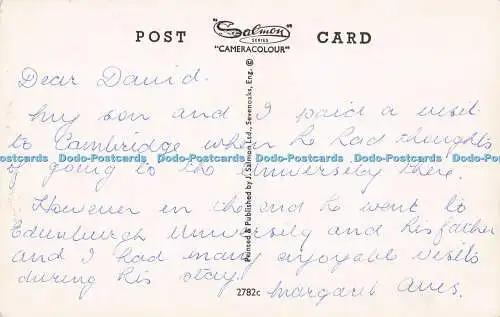 POST "Salmon" CARD
SERIES
"CAMERACOLOUR"
Dear David.
My son and I paid a visit
to Cambridge when he had thoughts
Dodo-Postcards Dodo-Postcards Dodo-Postcards Dodo-Postcards Dodo-Postcards
of going to the University there.
However in the end he went to
Edinburgh University and his father
and I had many enjoyable visits
during his stay.
Margaret
Printed & Published by J. Salmon Ltd., Sevenoaks, Eng. ©
2782c